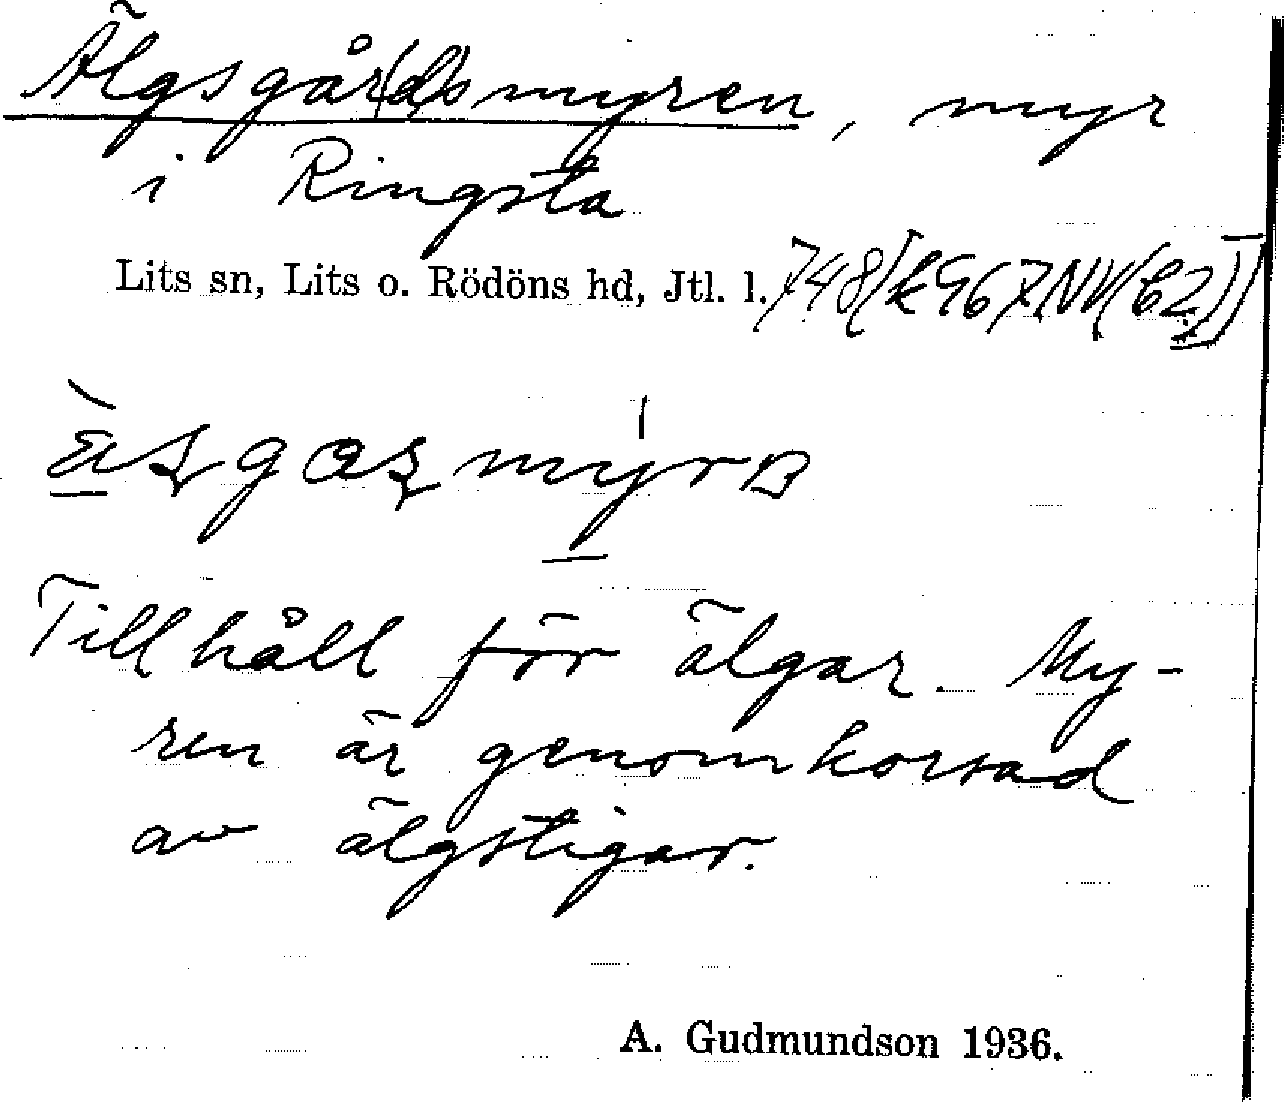 Älgsgår(d)smyren, myr
i Ringsta
Lits sn, Lits o. Rödöns hd, Jtl. l.
Tillhåll för älgar. My-
ren är genomkorsad
av älgstigar.
A. Gudmundson 1936.